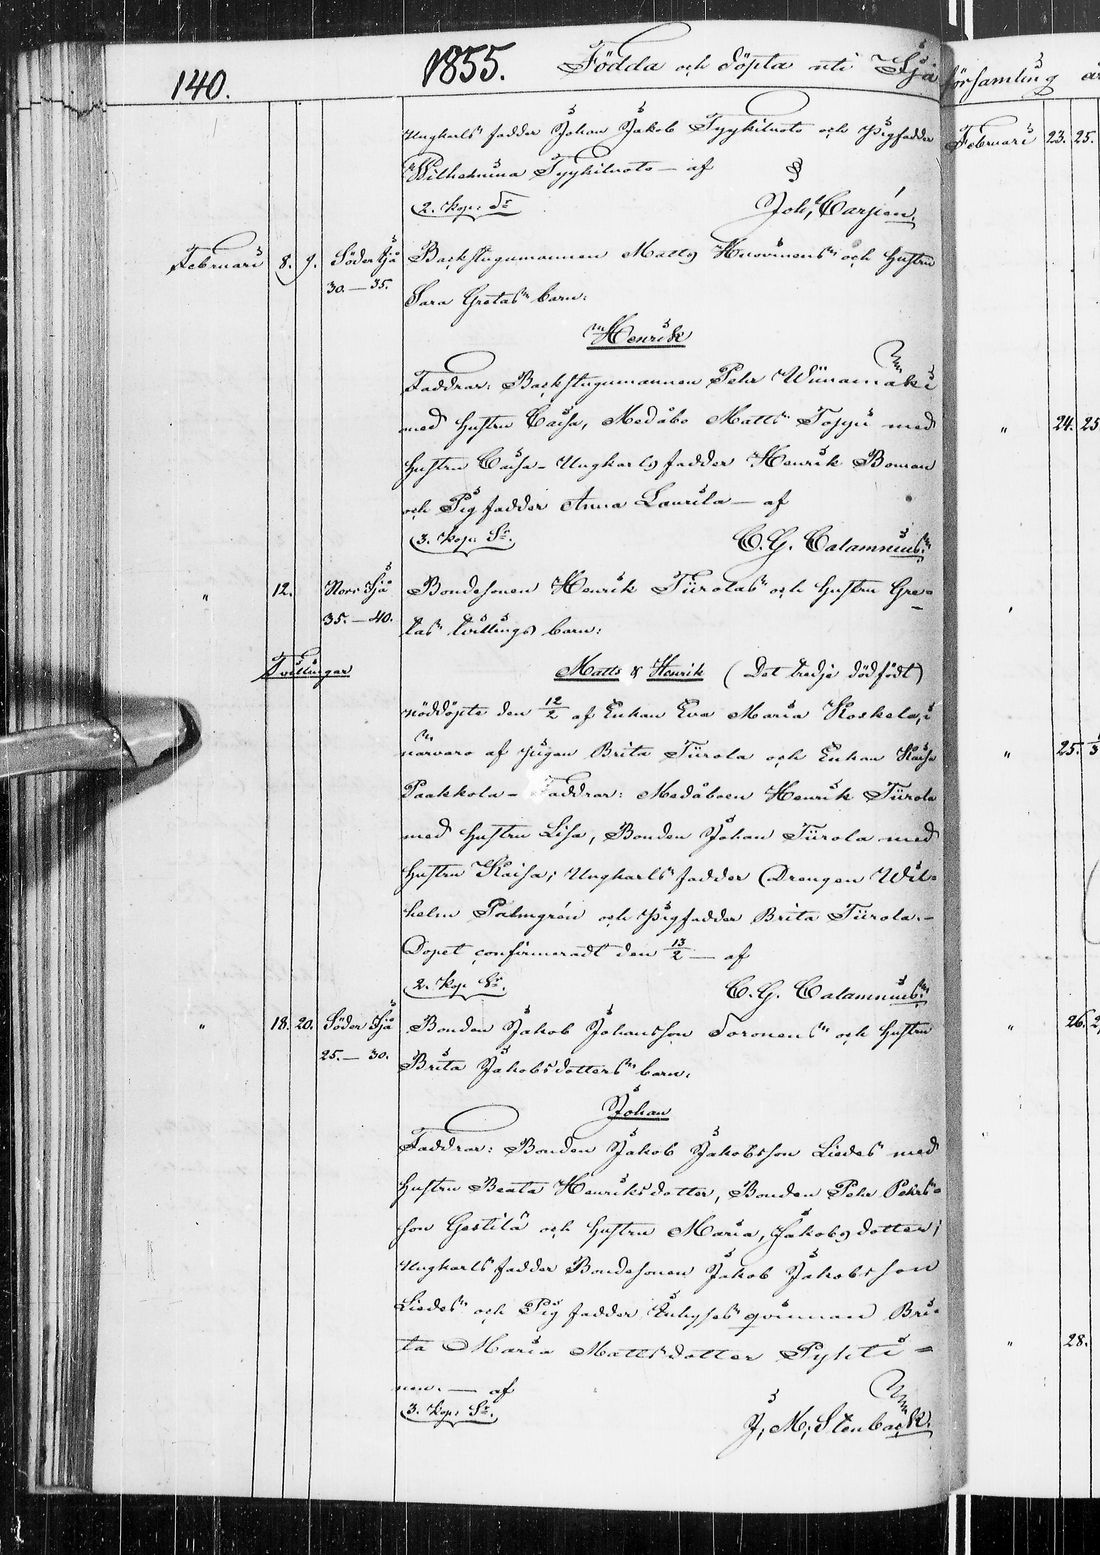 140. 1855. Födda och döpta uti Ijå församling år
Ungkarls fadder Johan Jakob Tyykiluoto och Pigfadder
Wilhelmina Tyykiluoto — af
2. kop. Sr Joh. Carsién.
Februari 8. 9. Söder Ijå Backstugumannen Matts Huovinens och hustru
30. — 35. Sara Gretas barn:
Henrik
Faddrar: Backstugumannen Pehr Wiinamäki
med hustru Caisa, Medåbo Matts med
hustru Caisa – Ungkarls fadder Henrik Boman
och Pig fadder Anna Laurila — af
3. kop. Sr. C. G. Calamnius.
" 12. Norr Ijå Bondesonen Henrik Tiirolas och hustru Gre-
35. — 40. tas tvillings barn:
Tvillingar Matts & Henrik (Det tredje dödfödt)
nöddöpte den 12/2 af Enkan Eva Maria Koskela, i
närvaro af pigan Brita Tiirola och Enkan Kaisa
Paakkola – Faddrar: Medåboen Henrik Tiirola
med hustru Lisa, Bonden Johan Tiirola med
hustru Kaisa; Ungkarls fadder Drengen Wil-
helm Palmgrén och Pigfadder Brita Tiirola. –
Dopet confirmeradt den 13/2 — af
2. kop. Sr. C. G. Calamnius.
" 18. 20. Söder Ijå Bonden Jakob Johansson Soronens och hustru
25. — 30. Brita Jakobsdotters barn:
Johan
Faddrar: Bonden Jakob Jakobsson Liedes med
hustru Beata Henriksdotter, Bonden Pehr Pehrs-
son Gestilä och hustru Maria Jakobsdotter;
Ungkarls fadder Bondesonen Jakob Jakobsson
Liedes och Pig fadder Inhyses qvinnan Bri-
ta Maria Mattsdotter Pyhti-
nen. — af
3. kop. Sr. J. M. Stenbäck.
Februari 23. 25.
" 24. 25
" 25.
" 26.
" 28.